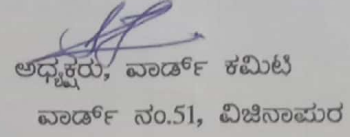 ಅಧ್ಯಕ್ಷರು, ವಾರ್ಡ್ ಕಮಿಟಿ
ವಾರ್ಡ್ ನಂ.51, ವಿಜಿನಾಪುರ